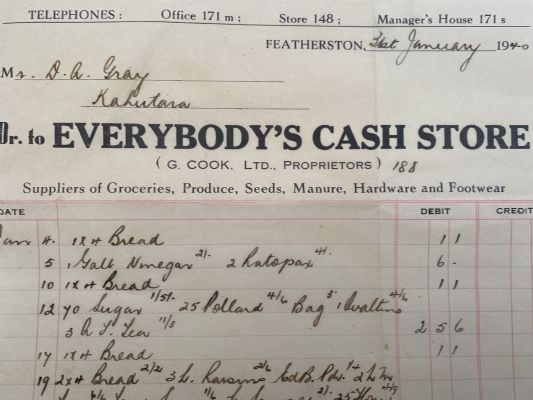 TELEPHONES: Office 171 m; Store 148; Manager's House 171 s
FEATHERSTON, 31st January 1940
Mr. D. A. Gray
Kahutara
Dr. to EVERYBODY'S CASH STORE
(G. COOK, LTD., PROPRIETORS) 188
Suppliers of Groceries, Produce, Seeds, Manure, Hardware and Footwear
DATE DEBIT CREDIT
Jan 4. 1x4 Bread 11
5 1 Gall Vinegar 2/- 2 Ratopax 4/- 6 -
10 1x4 Bread 11
12 70 Sugar 25 Pollard 4/6 Bag 1 Ovaltine 4/6
3 Tea 2 5 6
17 1x4 Bread 11
19 2x4 Bread 2/2 Raisins